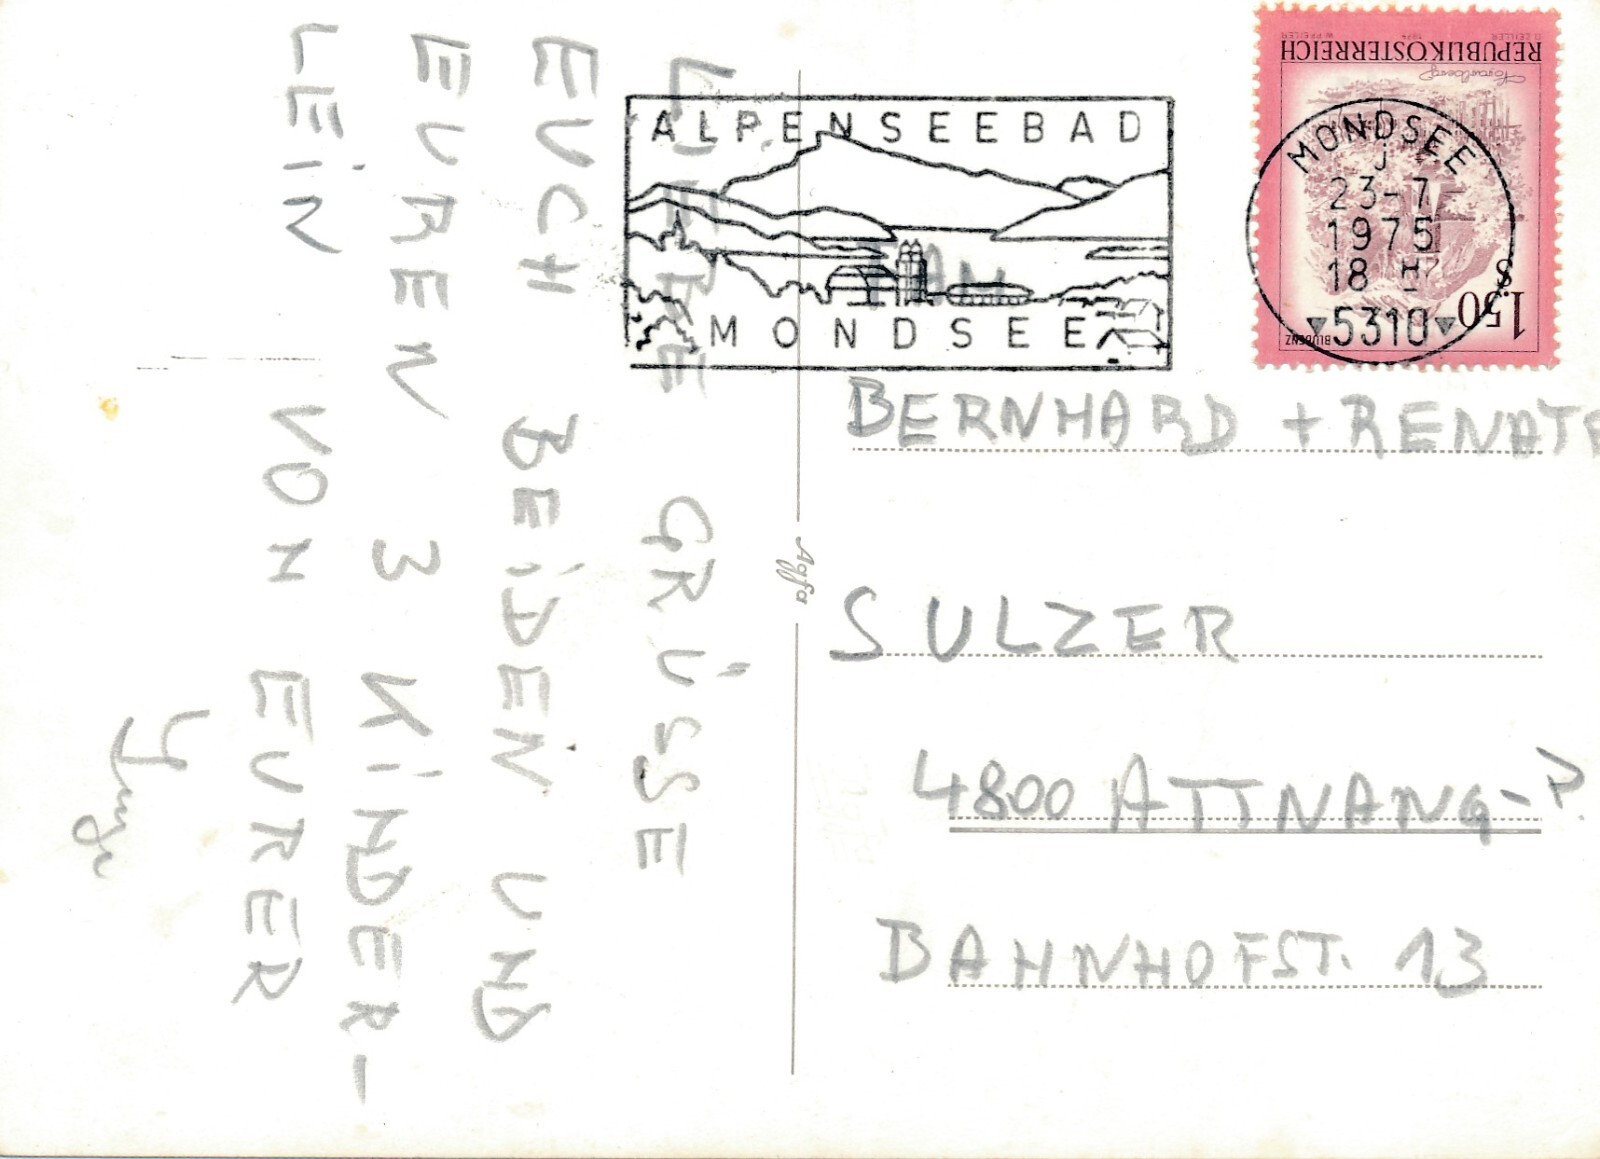 LIEBE GRÜSSE
EUCH BEIDEN UND
EUREN 3 KINDER-
LEIN VON EURER
ALPENSEEBAD
MONDSEE
MONDSEE
J
23-7
1975
18 H
5310
REPUBLIK ÖSTERREICH
Vorarlberg
O. ZEILLER 1974 W. PFEILER
S 1.50
BLUDENZ
Agfa
BERNHARD + RENATE
SULZER
4800 ATTNANG-P.
BAHNHOFST. 13